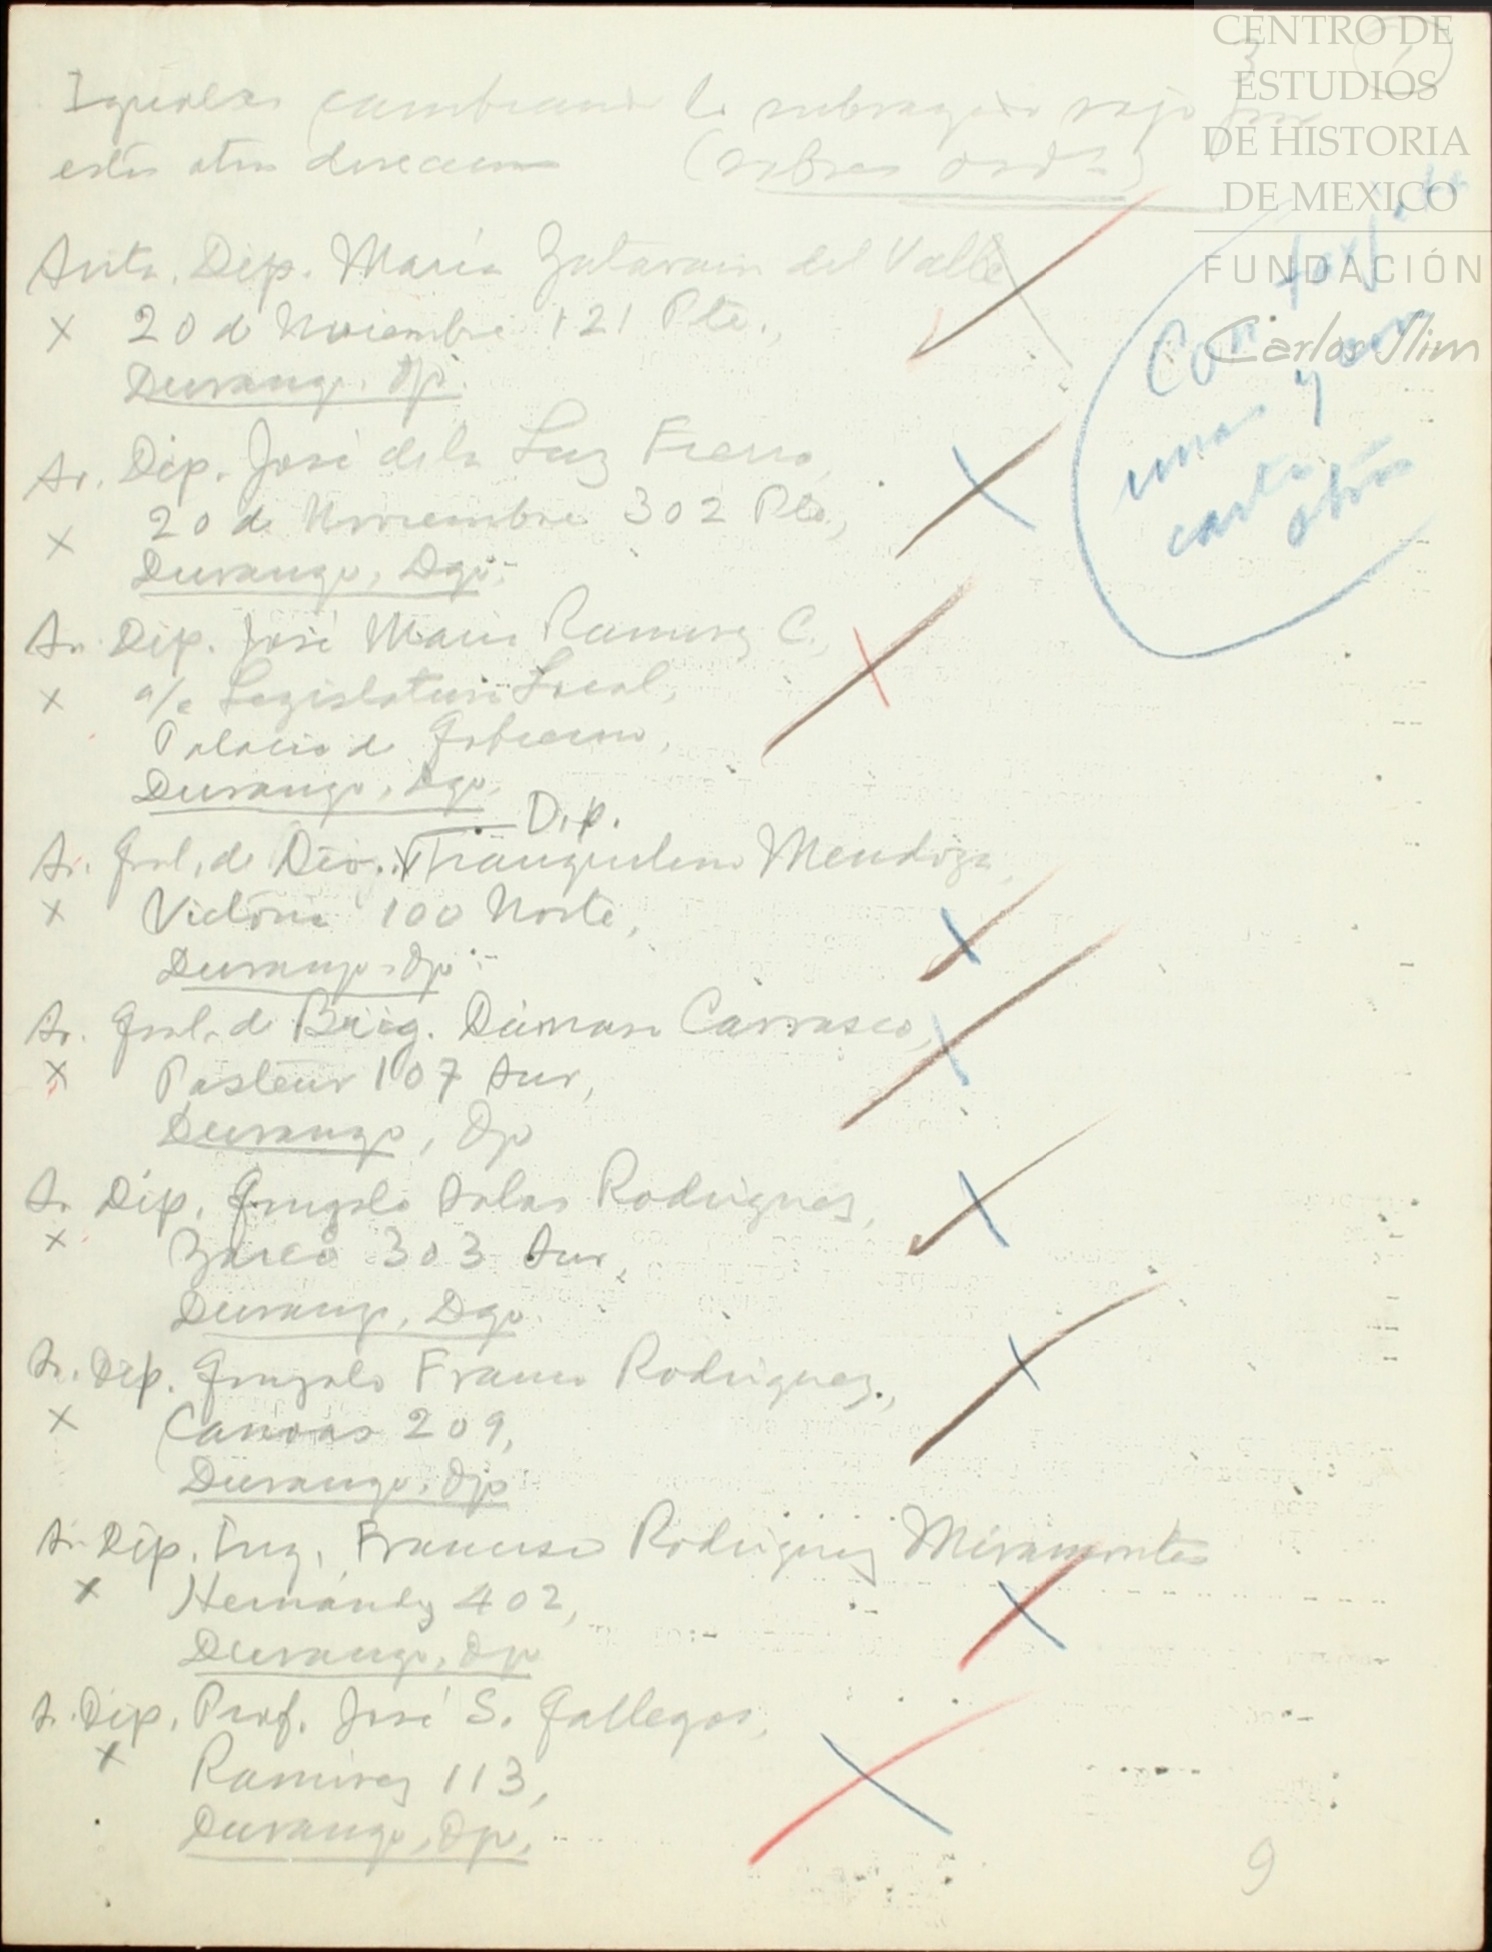 CENTRO DE
ESTUDIOS
DE HISTORIA
DE MEXICO
FUNDACIÓN
Carlos Slim
3
Iguales cambiando lo subrayado rojo por
estas otras direcciones (sobres
Con
una y
carta otras
Srita. Dip. María Zatarain del Valle
x 20 de Noviembre 121 Pte.,
Durango, Dgo.
Sr. Dip. José de la Luz Fierro,
x 20 de Noviembre 302 Pte.,
Durango, Dgo.
Sr. Dip. José María Ramirez C.,
x a/c Legislatura Local,
Palacio de Gobierno,
Durango, Dgo.
Dip.
Sr. Gral. de Div. Tranquilino Mendoza,
x Victoria 100 Norte,
Durango, Dgo.
Sr. Gral. de Brig. Dámaso Carrasco,
x Pasteur 107 Sur,
Durango, Dgo
Sr. Dip. Gonzalo Salas Rodriguez,
x Zarco 303 Sur,
Durango, Dgo.
Sr. Dip. Gonzalo Franco Rodriguez,
x Canoas 209,
Durango, Dgo
Sr. Dip. Ing. Francisco Rodriguez Miramontes
x Hernández 402,
Durango, Dgo
Sr. Dip. Prof. José S. Gallegos,
x Ramirez 113,
Durango, Dgo.
9